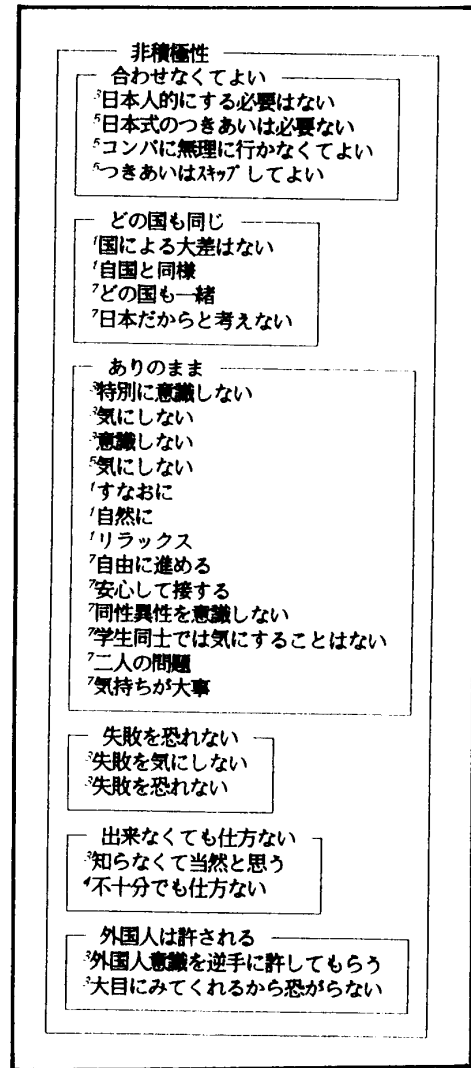 非積極性
合わせなくてよい
³日本人的にする必要はない
⁵日本式のつきあいは必要ない
⁵コンパに無理に行かなくてよい
⁵つきあいはｽｷｯﾌﾟしてよい
どの国も同じ
¹国による大差はない
¹自国と同様
⁷どの国も一緒
⁷日本だからと考えない
ありのまま
³特別に意識しない
³気にしない
³意識しない
⁵気にしない
¹すなおに
¹自然に
¹リラックス
⁷自由に進める
⁷安心して接する
⁷同性異性を意識しない
⁷学生同士では気にすることはない
⁷二人の問題
⁷気持ちが大事
失敗を恐れない
³失敗を気にしない
³失敗を恐れない
出来なくても仕方ない
³知らなくて当然と思う
⁴不十分でも仕方ない
外国人は許される
³外国人意識を逆手に許してもらう
³大目にみてくれるから恐がらない